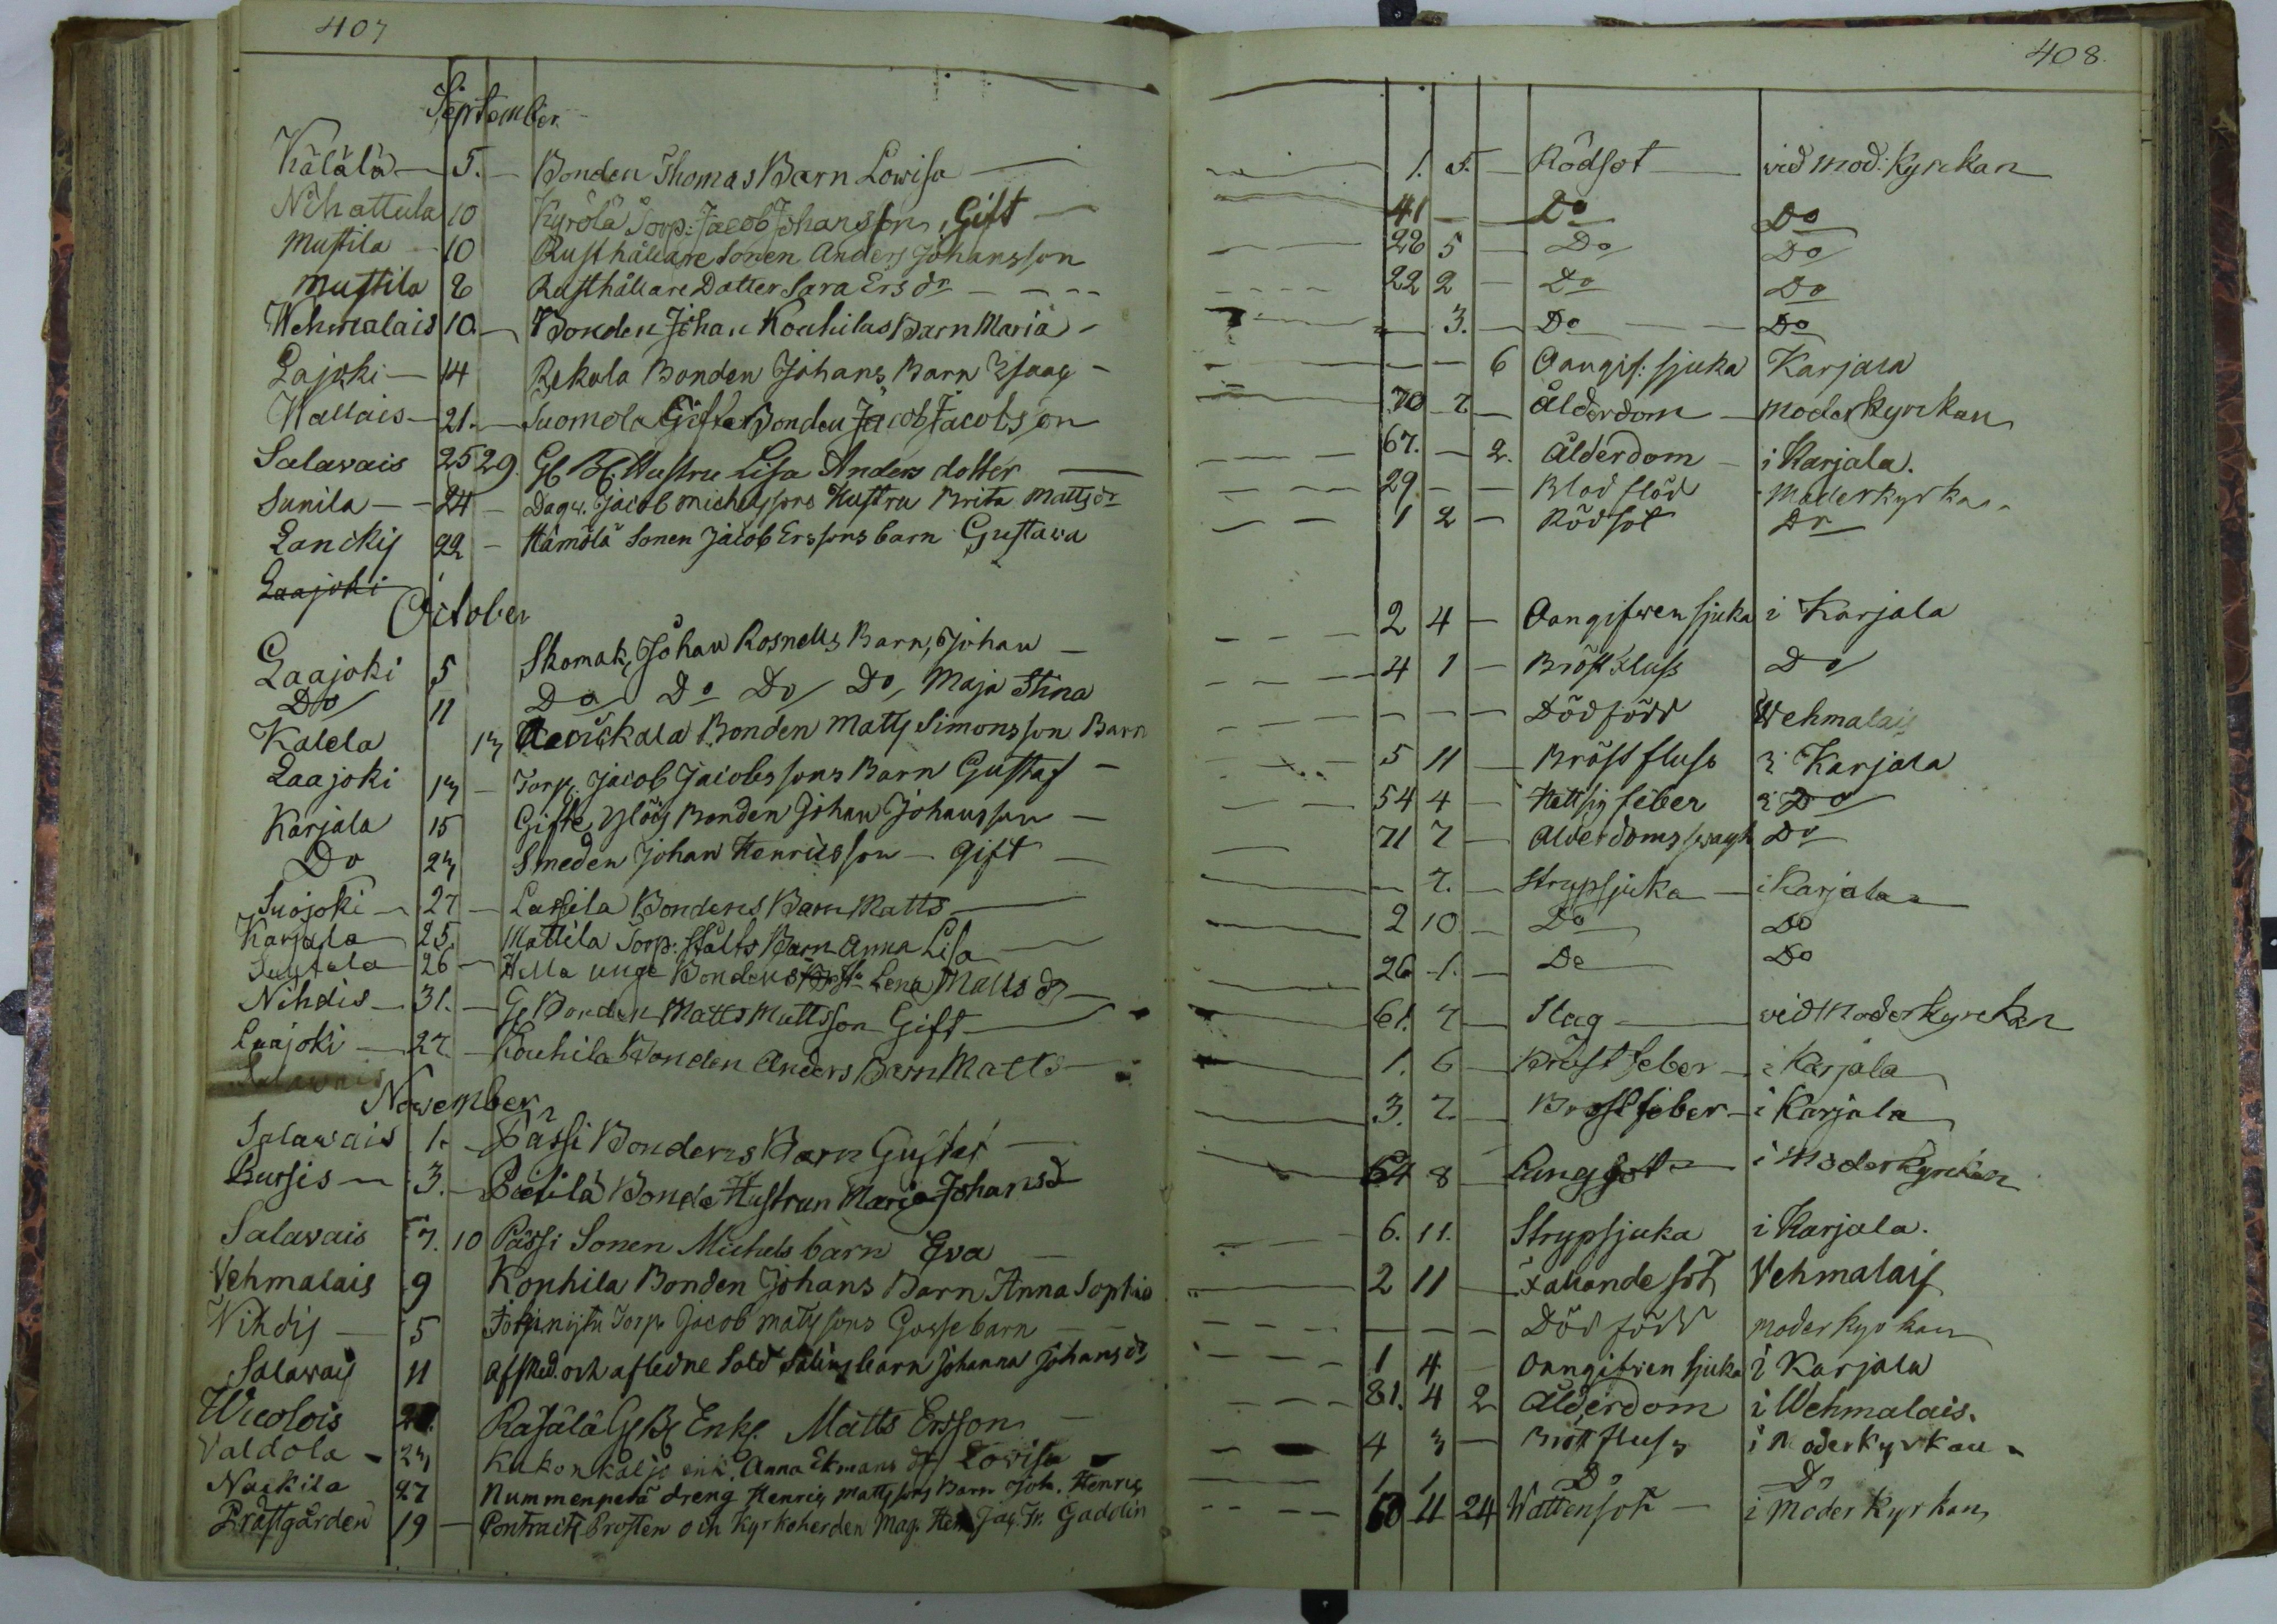 407
September
Kälälä 5. Bonden Thomas Barn Lowisa
Nihattula 10 Kyrölä Torp. Jacob Johansson, Gift
Mustila 10 Rusthållare Sonen Anders Johansson
Mustila 8 Rusthållare Dotter Sara Ers dr
Wehmalais 10. Bonden Johan Kouhilas Barn Maria
Lajoki 14 Rekola Bonden Johans Barn Isaac
Wallais 21. Suomola Gifte Bonden Jacob Jacobsson
Salavais 25 29. Gl. B. Hustru Lisa Anders dotter
Sunila 24 Dagw. Jacob Michelssons Hustru Brita Mattsdr
Lanckis 22 Hämölä Sonen Jacob Erssons barn Gustava
Laajoki
October
Laajoki 5 Skomak. Johan Rosnells Barn, Johan
Do 11 Do Do Do Do Maja Stina
Kalela 13 Bonden Matts Simonsson Barn
Laajoki 13 Torp. Jacob Jacobssons Barn Gustaf
Karjala 15 Gifte Bonden Johan Johansson
Do 23 Smeden Johan Henricsson Gift
Suojoki 27 Lassila Bondens Barn Matts
Karjala 25. Mattila Torp. Stålts Barn Anna Lisa
26 Hella unge Bondens Lena Matts dr
Nihdis 31. G. Bonden Matts Mattsson Gift
Laajoki 27. Kouhila Bonden Anders Barn Matts
Salavais
November
Salawais 1. Pässi Bondens Barn Gustaf
Bursis 3. Bonde Hustrun Maria Johansd
Salavais 7. 10 Pässi Sonen Michels barn Eva
Vehmalais 9 Kouhila Bonden Johans Barn Anna Sophia
Nihdis 5 Torp. Jacob Matssons Gossebarn
Salavais 11 afsked. och afledne Sold barn Johanna Johans dr
Wicolois Rasälä Gl. B. Enkl. Matts Ersson
Valdola 23 Kukonkaljo enk. Anna Ekmans dr Lovisa
Nackila 27 Nummenpetä dreng Henric Mattssons Barn Joh. Henric
Prästgården 19 Contracts Prosten och Kyrkoherden Mag. Jac. Fr. Gaddlin
408.
1. 5. Rödsot vid Mod: kyrckan
41 Do Do
28 5 Do Do
22 2 Do Do
3. Do Do
6 Oangif: sjuka Karjala
70 7. Ålderdom Moderkyrckan
67. 2. Ålderdom i Karjala.
29 Blodflöd Moderkyrka
1 2 Rödsot Do
2 4 Oangifwen sjuka i Karjala
4 1 Bröstfluss Do
Dödfödd Wehmalais
5 11 Bröstfluss i Karjala
54 4 Hettsig feber i Do
71 7 Alderdoms swagh Do
7. Strypsjuka i Karjala
2 10 Do Do
26 1. Do Do
61. 7 Slag vid Moderkyrckan
1. 6 Bröst feber i Karjala
3. 7. Bröst feber i Karjala
64 8 Lungsot i Moderkyrckan
6. 11. Strypsjuka i Karjala.
2 11 Fallande sot Vehmalais
Död född moderkyrkan
1 4 Oangifven sjuka i Karjala
81. 4 2 Ålderdom i Wehmalais.
4 3 Bröstfluss i Moderkyrkan
1 1 Do Do
60 11 24 Wattensot i Moderkyrkan